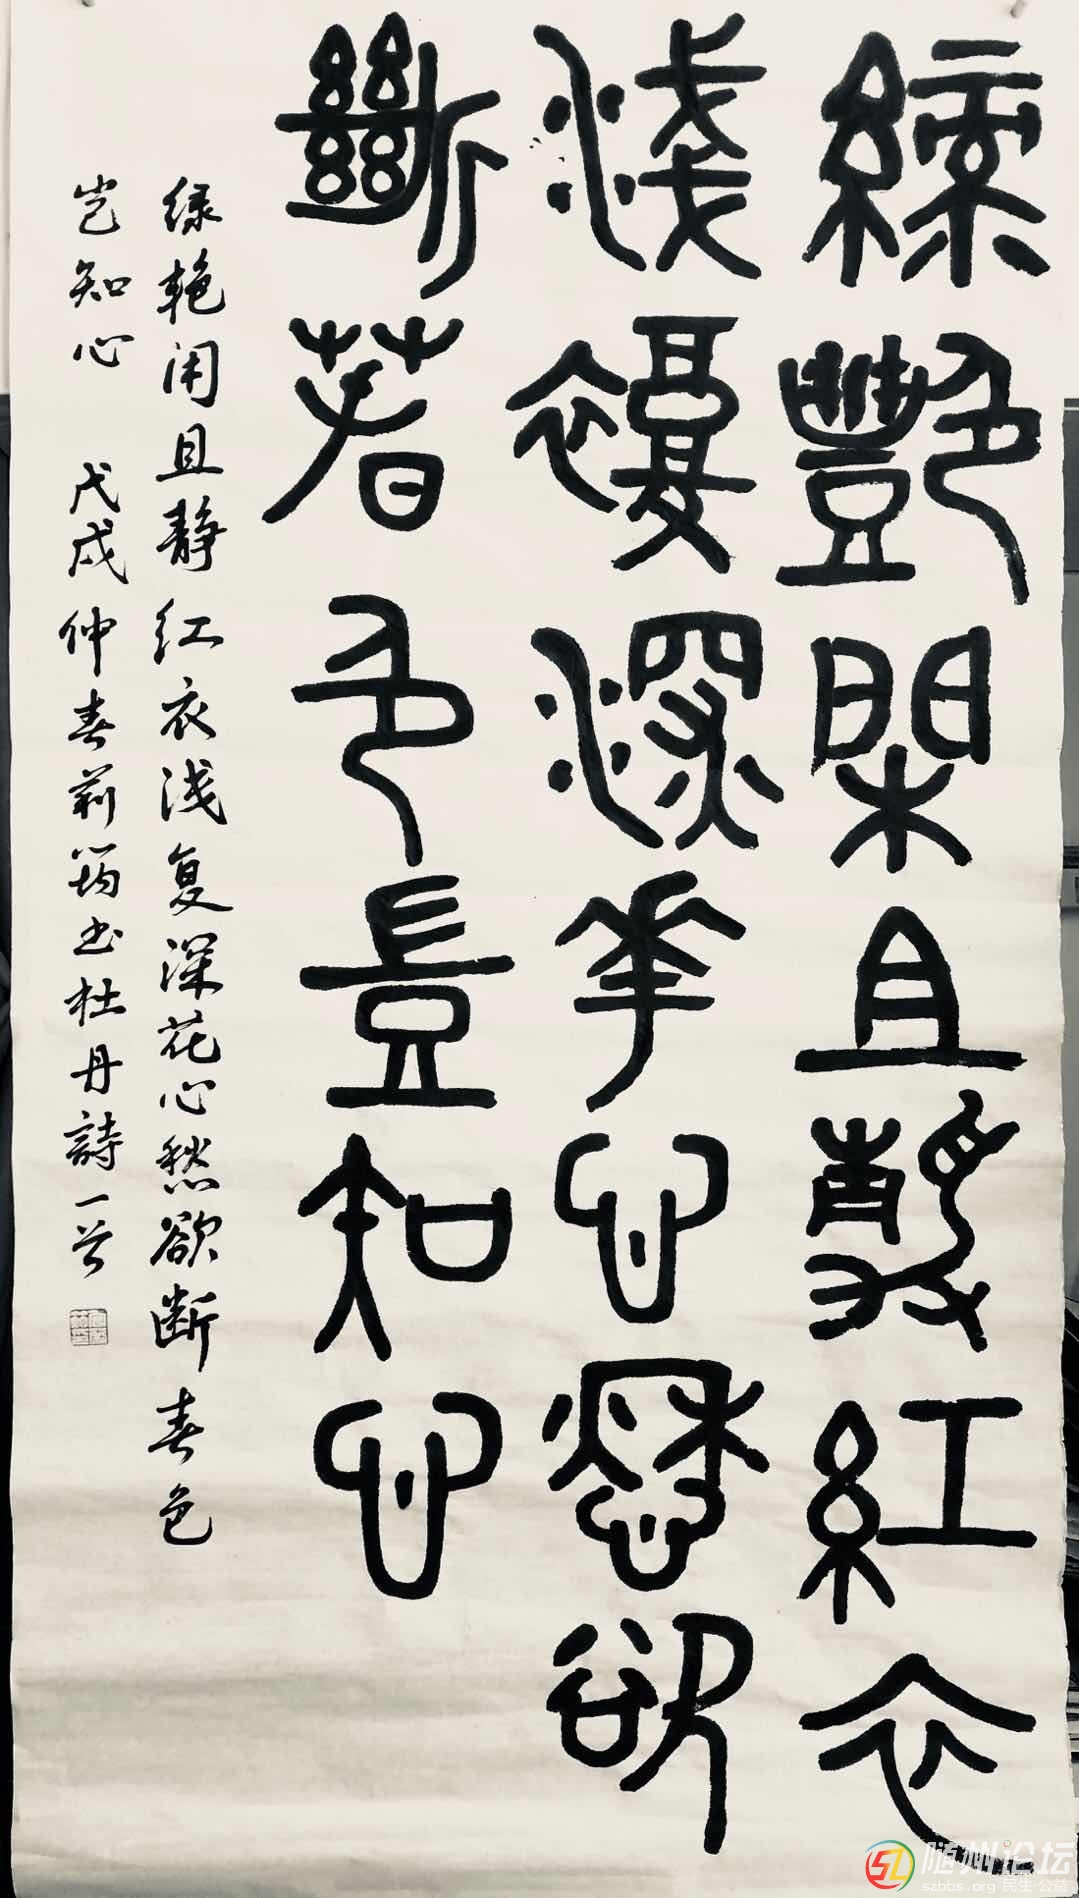 綠豔閑且靜紅衣
淺複深花心愁欲
斷春色豈知心
绿艳闲且静红衣浅复深花心愁欲断春色
岂知心 戊戌仲春莉筠书杜丹詩一首
随州论坛
szbbs.org 民生·公益